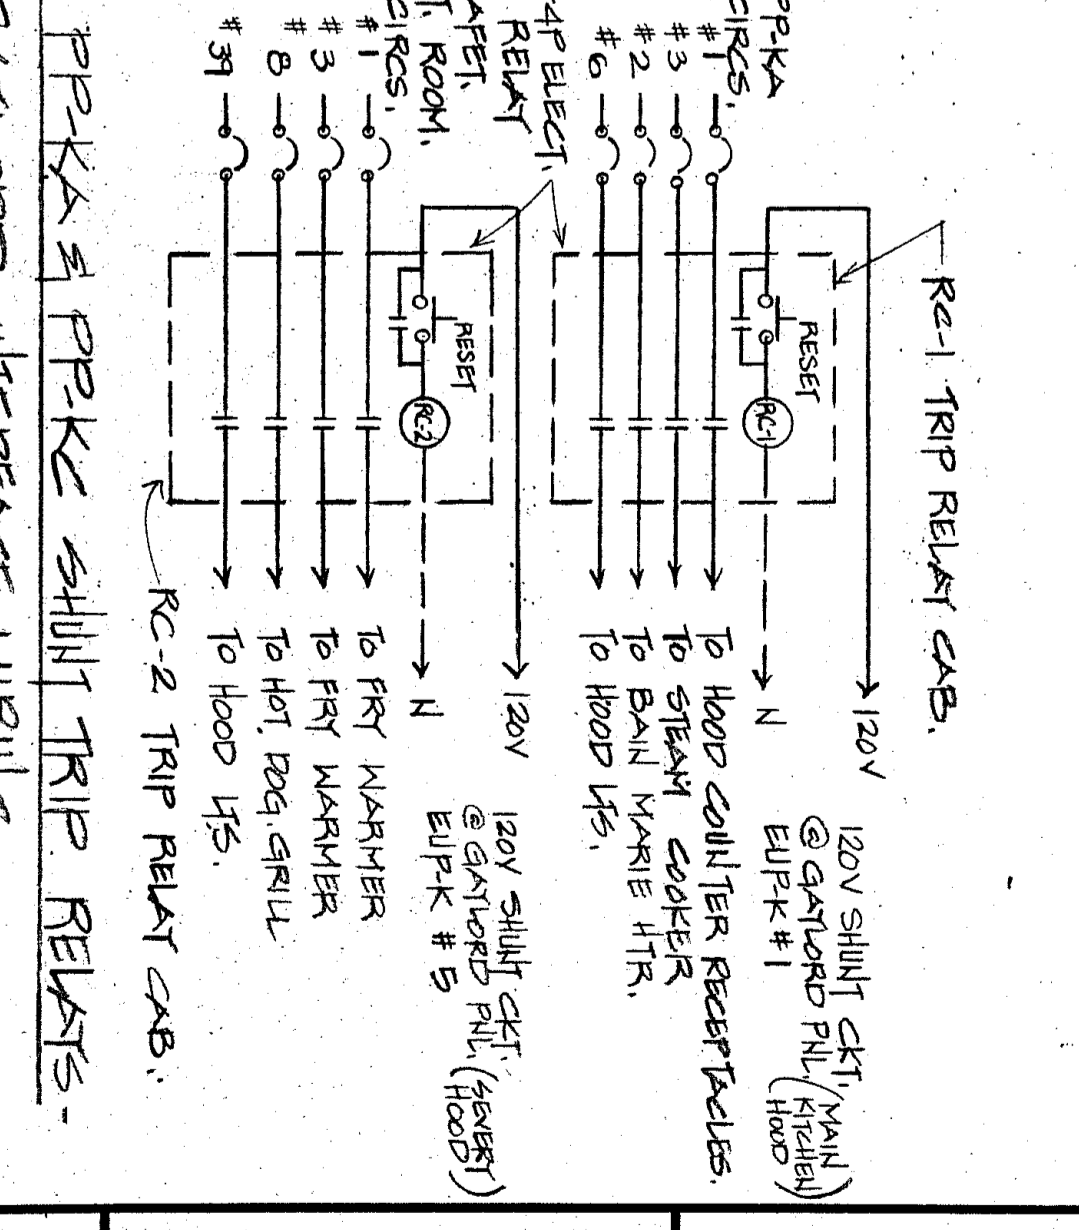 RC-1 TRIP RELAY CAB.
120V
120V SHUNT CKT.
@ GAYLORD PNL. (MAIN
KITCHEN
HOOD)
EUP-K #1
N
RESET
RC-1
PP-KA
CIRCS.
#1
TO HOOD COUNTER RECEPTACLES.
#3
TO STEAM COOKER
#2
TO BAIN MARIE HTR.
#6
TO HOOD LTS.
4P ELECT.
RELAY
120V
120V SHUNT CKT.
@ GAYLORD PNL. (SEVERY
HOOD)
EUP-K #5
N
RESET
RC-2
T. ROOM.
CIRCS.
#1
TO FRY WARMER
#3
TO FRY WARMER
#8
TO HOT. DOG. GRILL
#39
TO HOOD LTS.
RC-2 TRIP RELAY CAB.
PP-KA & PP-KC SHUNT TRIP RELAYS-